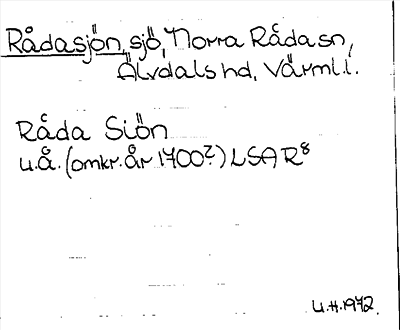 Rådasjön, sjö, Norra Råda sn,
Älvdals hd, Värml. l.
Råda Siön
u.å. (omkr. år 1700?) LSA R8
U.H. 1972.